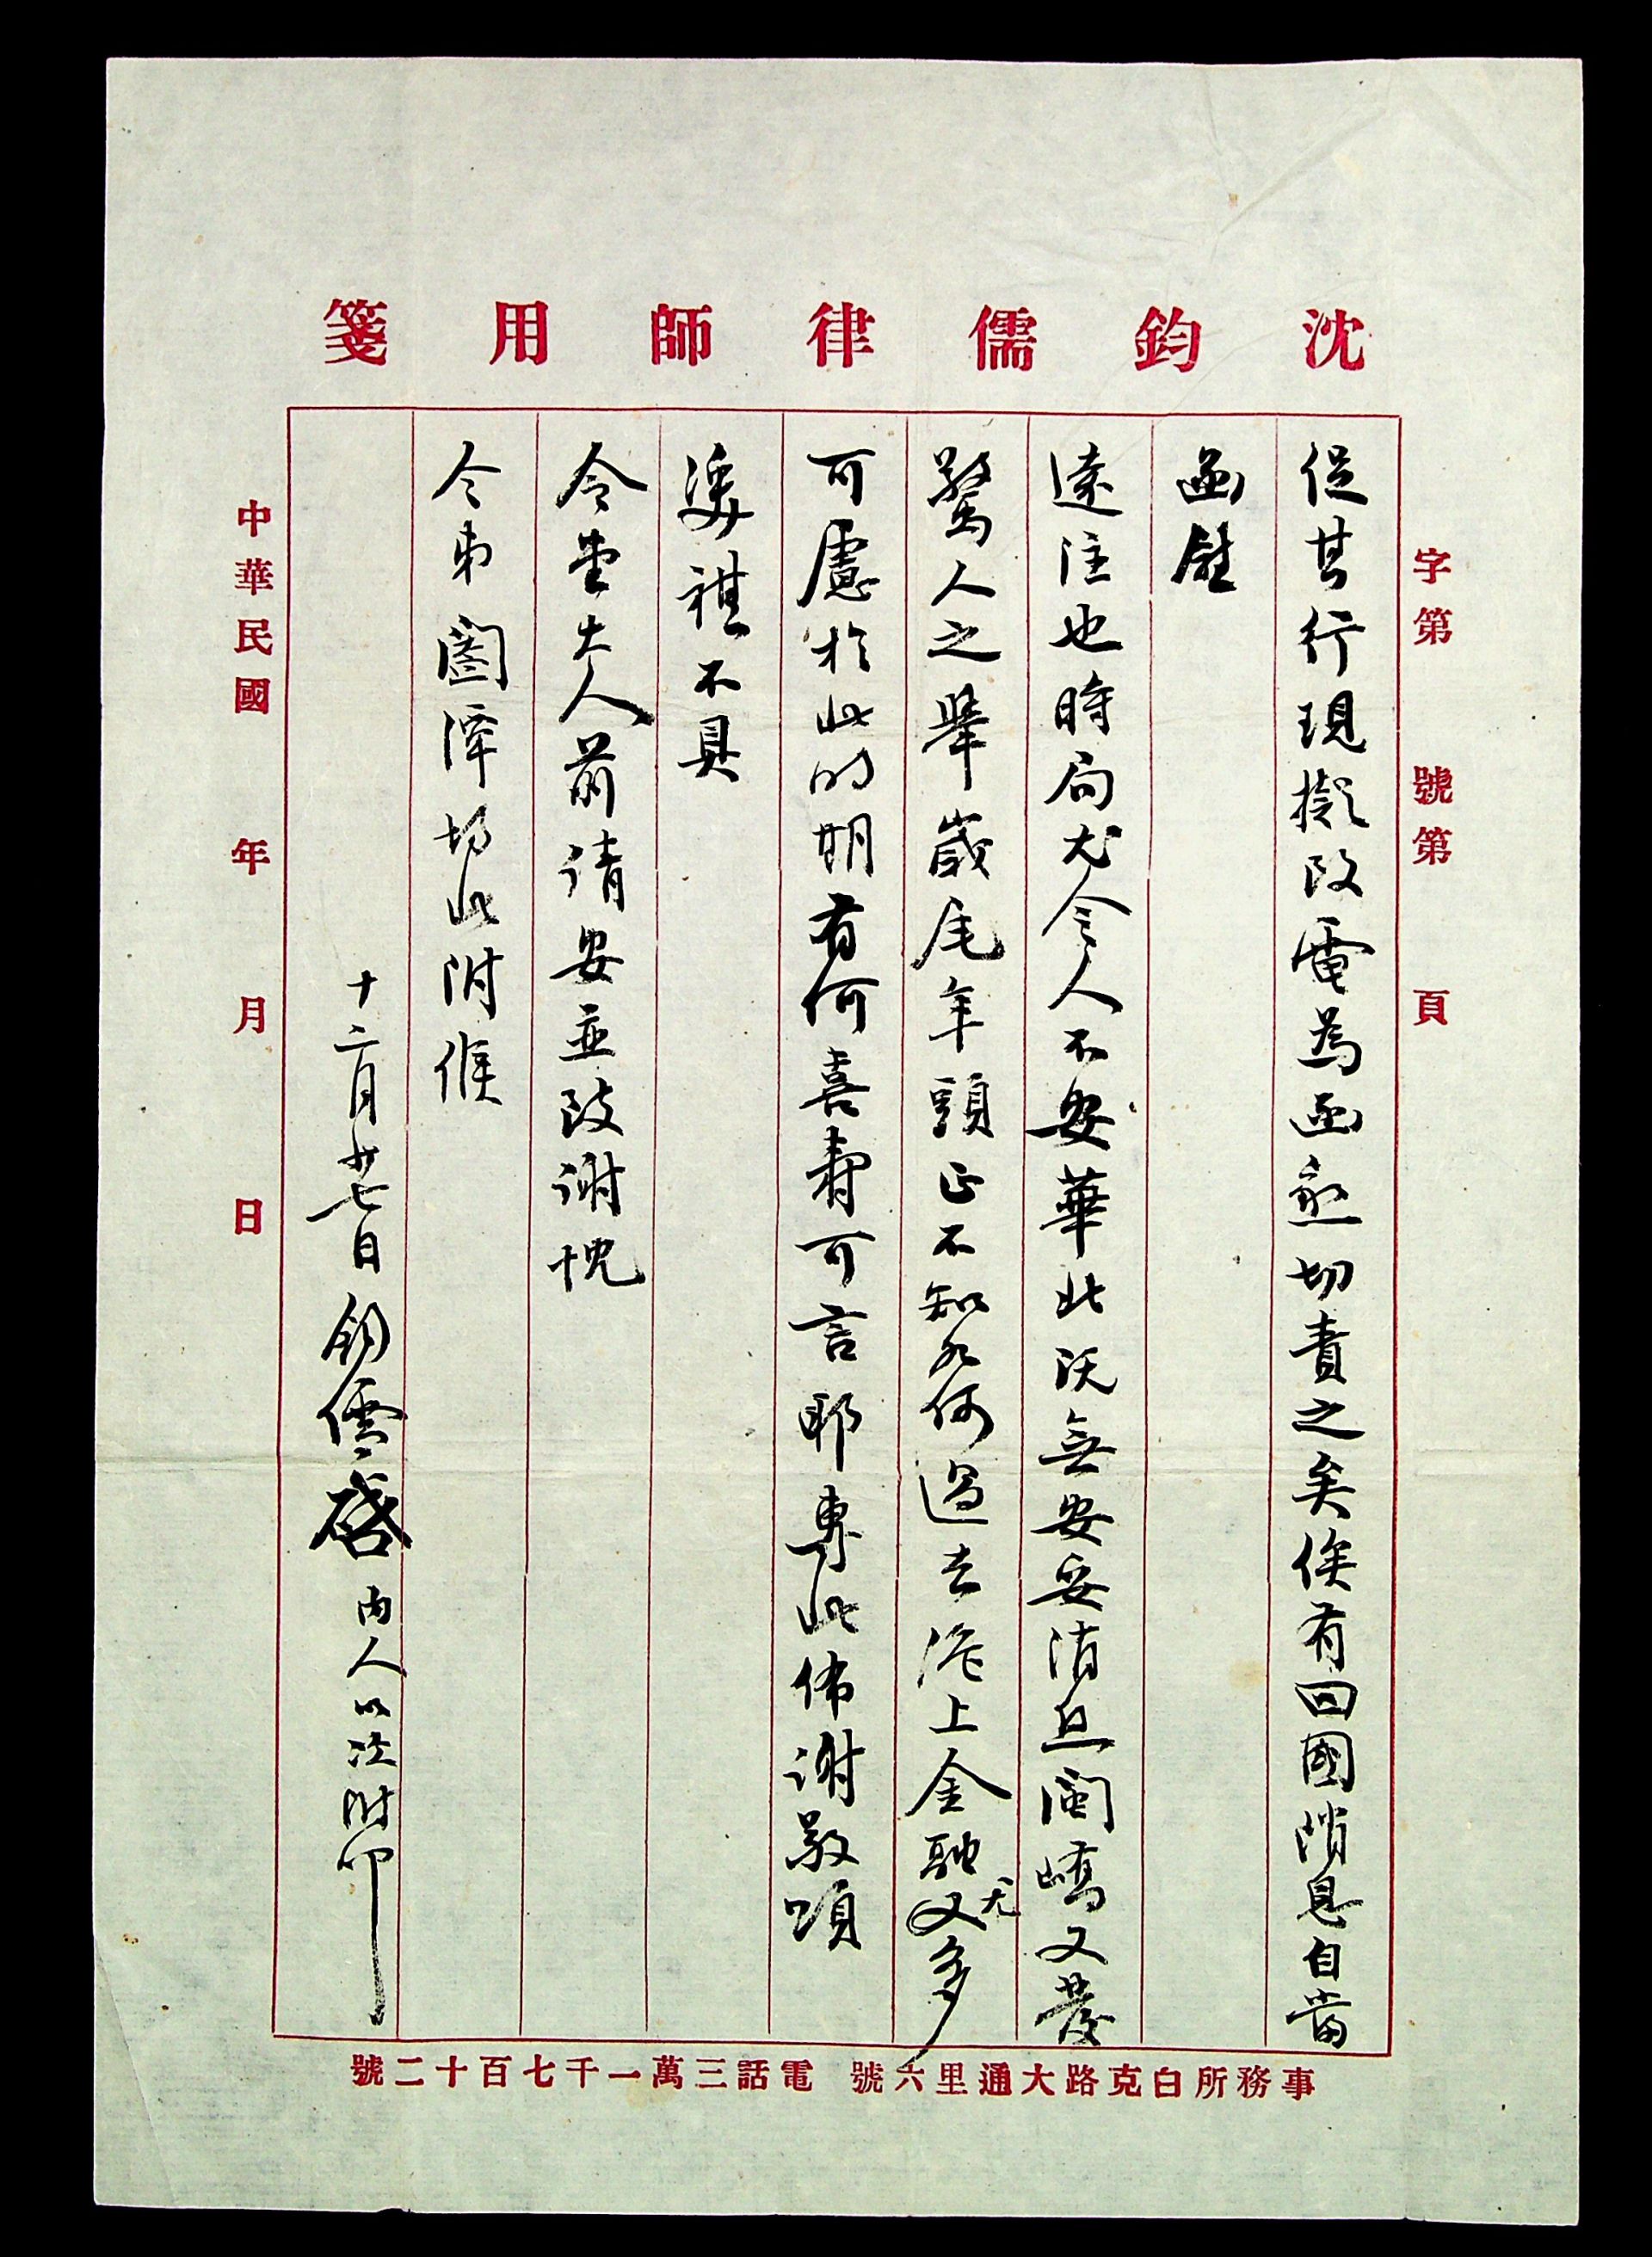 沈鈞儒律師用箋
字第 號第 頁
促其行現擬改電為函懇切責之矣俟有回國消息自當
函
遠注也時局尤令人不安華北既無安妥消息閩嶠又發
驚人之舉歲尾年頭正不知如何過去滬上金融又尤多
可慮於此時期有何喜壽可言耶專此佈謝敬頌
祺不具
令堂大人前請安並致謝忱
令弟閤潭均此附候
十二月廿七日 鈞儒啓 內人以附叩
中華民國 年 月 日
事務所白克路大通里六號 電話三萬一千七百十二號